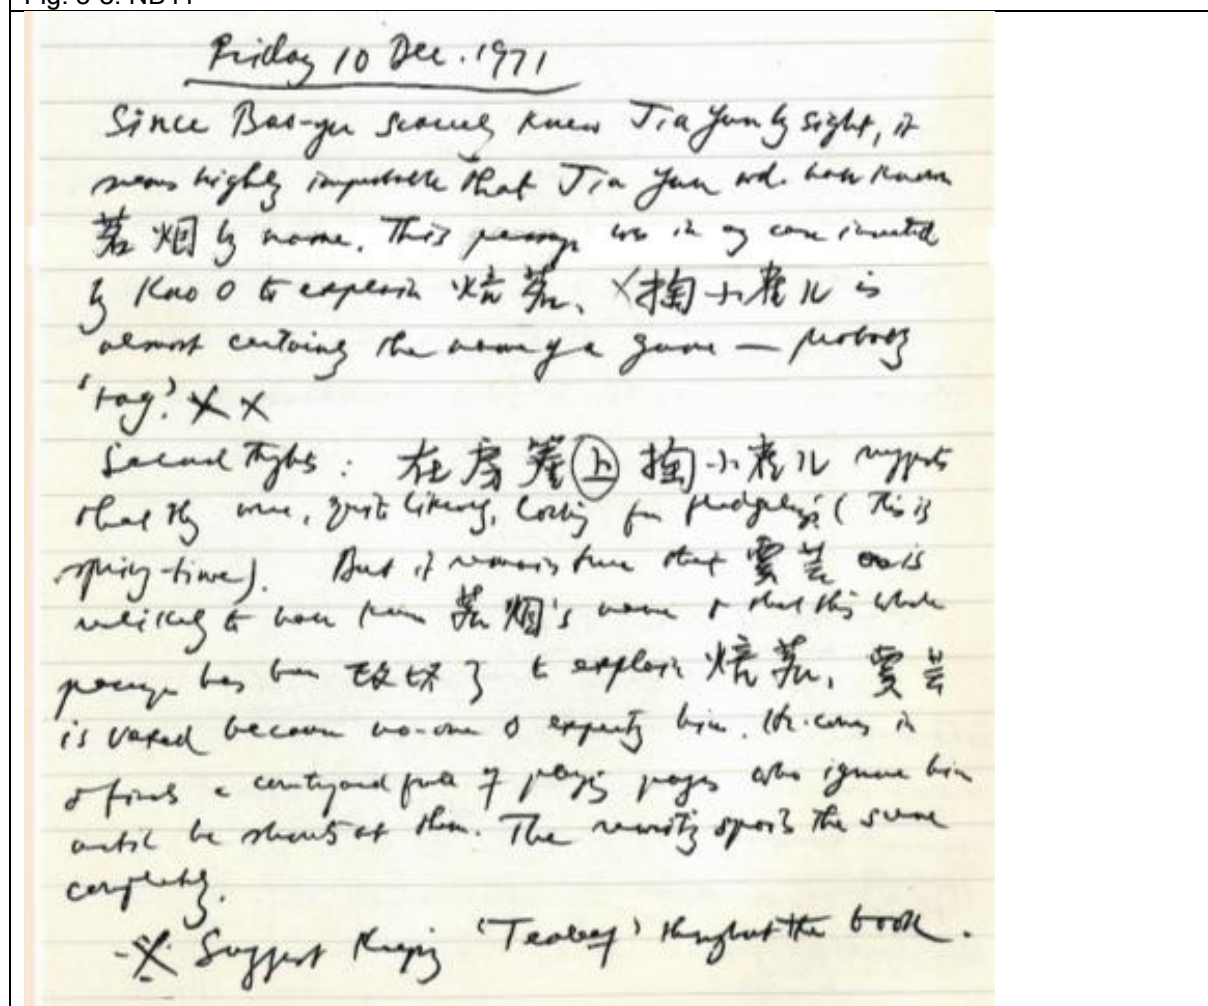 Friday 10 Dec. 1971
Since Bao-yu scarcely knew Jia Yun by sight, it
seems highly improbable that Jia Yun wd. have known
茗烟 by name. This passage was in any case invented
by Kao O to explain 焙茗. X掏小雀儿 is
almost certainly the name of a game — probably
'tag'. X X
Second thghts: 在房簷上掏小雀儿 suggests
that they were, quite literally, looking for fledgelings (This is
spring-time). But it remains true that 賈芸 is
unlikely to have known 茗烟's name & that this whole
passage has been 改坏了 to explain 焙茗. 賈芸
is vexed because no-one expects him. He comes in
& finds a courtyard full of playing pages who ignore him
until he shouts at them. The rewriting spoils the scene
completely.
X Suggest keeping 'Tealeaf' throughout the book.